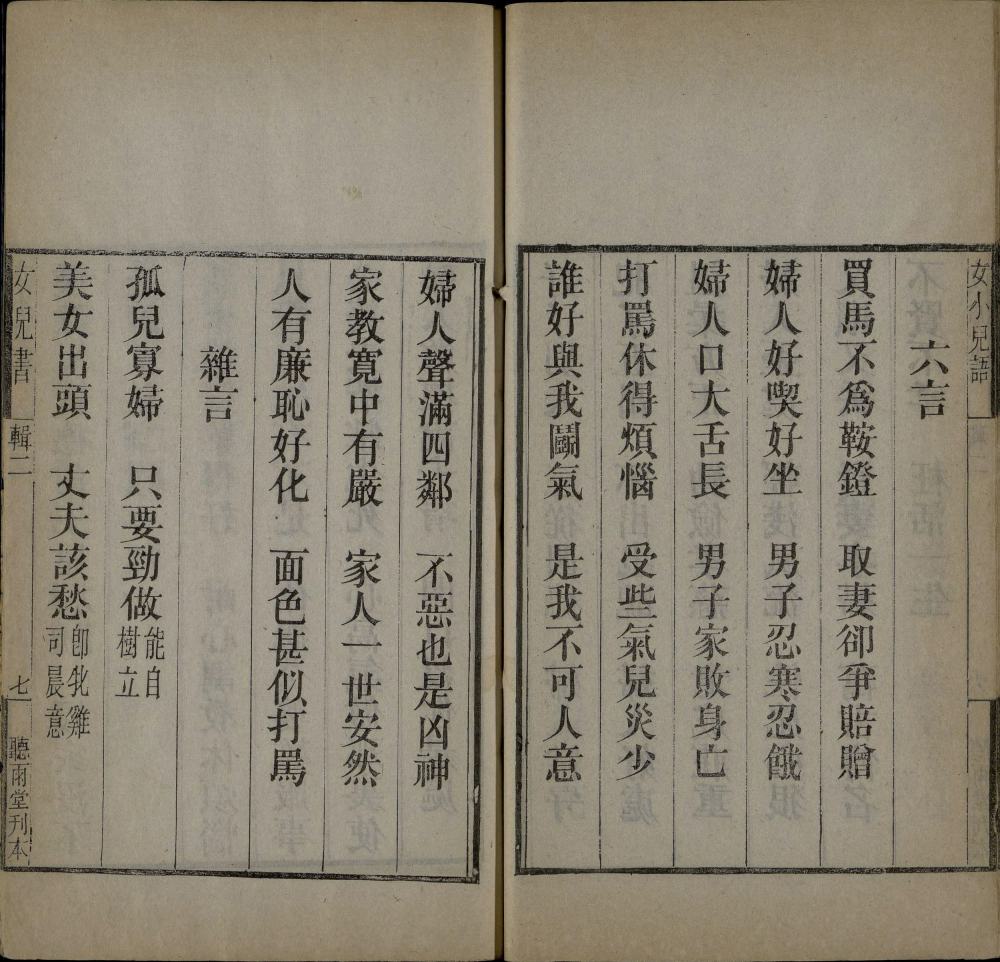 女小兒語
六言
買馬不爲鞍鐙　取妻卻爭賠贈
婦人好喫好坐　男子忍寒忍餓
婦人口大舌長　男子家敗身亡
打罵休得煩惱　受些氣兒災少
誰好與我鬬氣　是我不可人意
婦人聲滿四鄰　不惡也是凶神
家教寬中有嚴　家人一世安然
人有廉恥好化　面色甚似打罵
雜言
孤兒寡婦　只要勁做能自樹立
美女出頭　丈夫該愁卽牝雞司晨意
女兒書　輯二　七　聽雨堂刊本